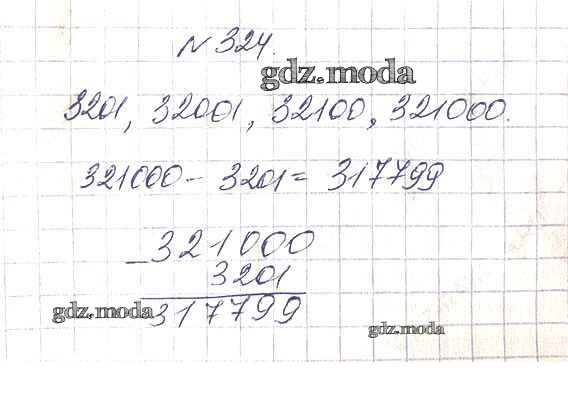 № 324.
gdz.moda
3201, 32001, 32100, 321000.
321000 - 3201 = 317799
- 321000
3201
gdz.moda 317799
gdz.moda